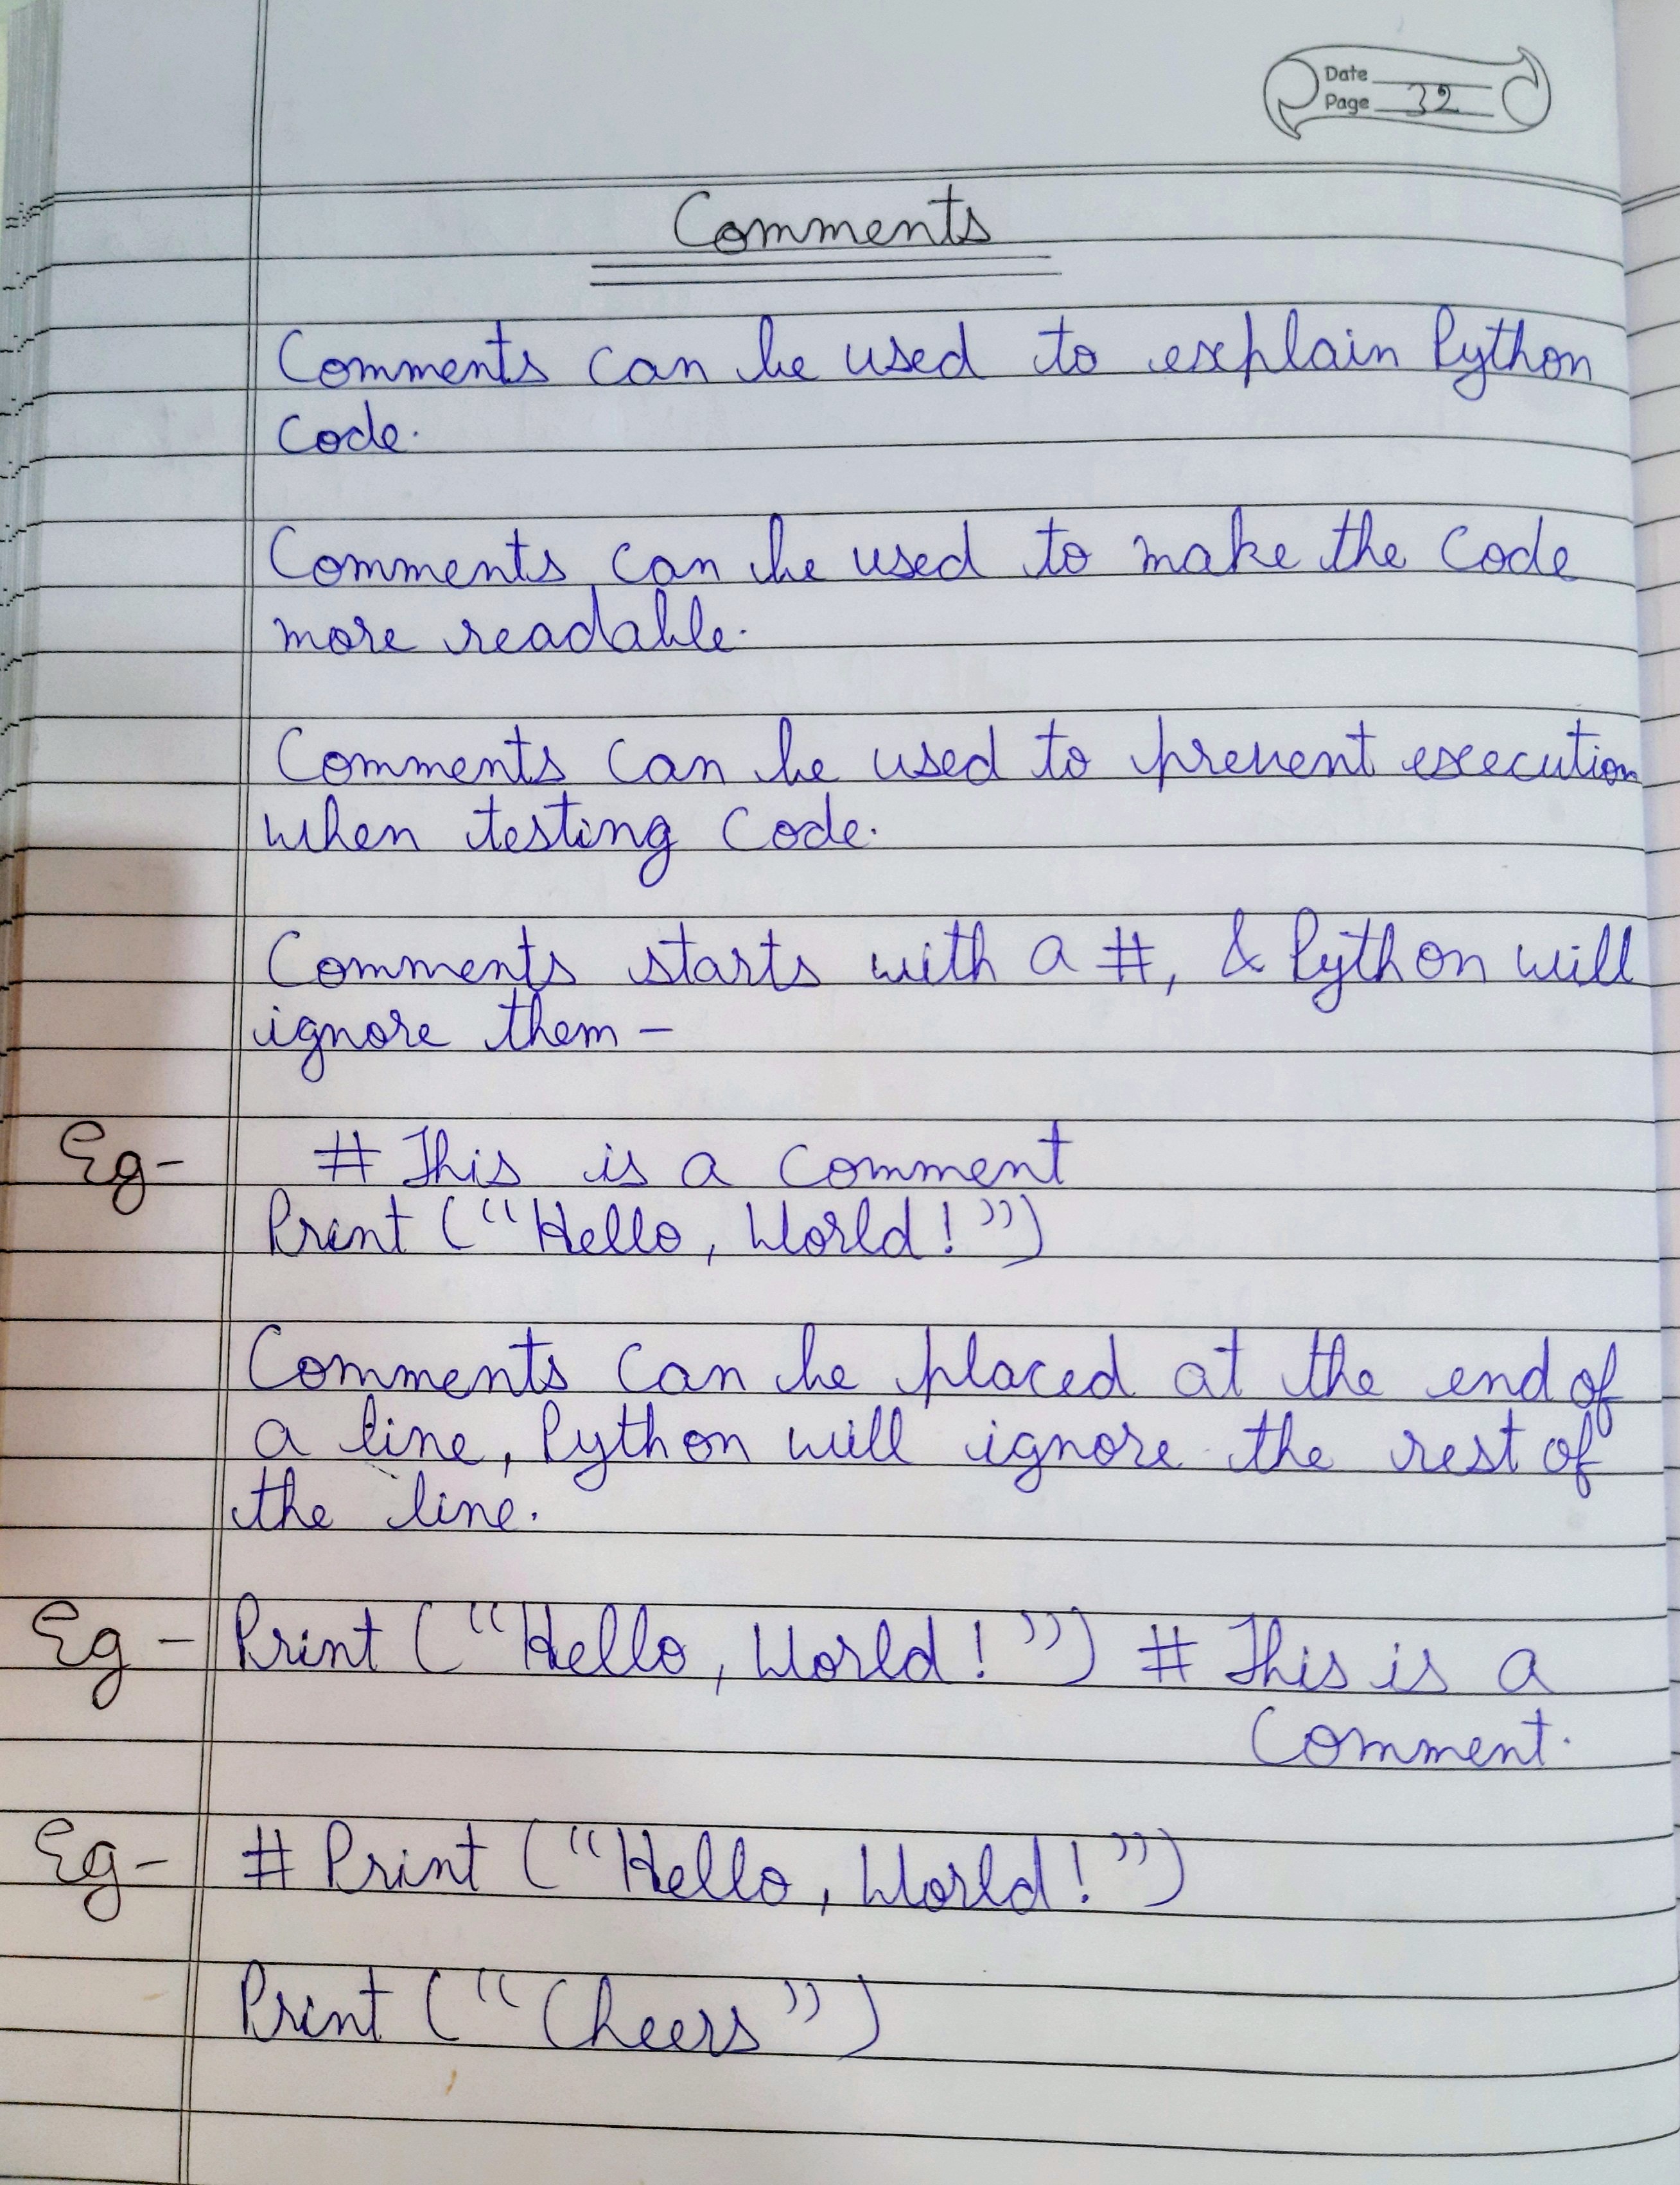 Date
Page 32
Comments
Comments can be used to explain Python
Code.
Comments can be used to make the Code
more readable.
Comments can be used to prevent execution
when testing Code.
Comments starts with a #, & Python will
ignore them -
Eg- # This is a Comment
Print ("Hello, World!")
Comments can be placed at the end of
a line, Python will ignore the rest of
the line.
Eg - Print ("Hello, World!") # This is a
Comment.
Eg- # Print ("Hello, World!")
Print ("Cheers")